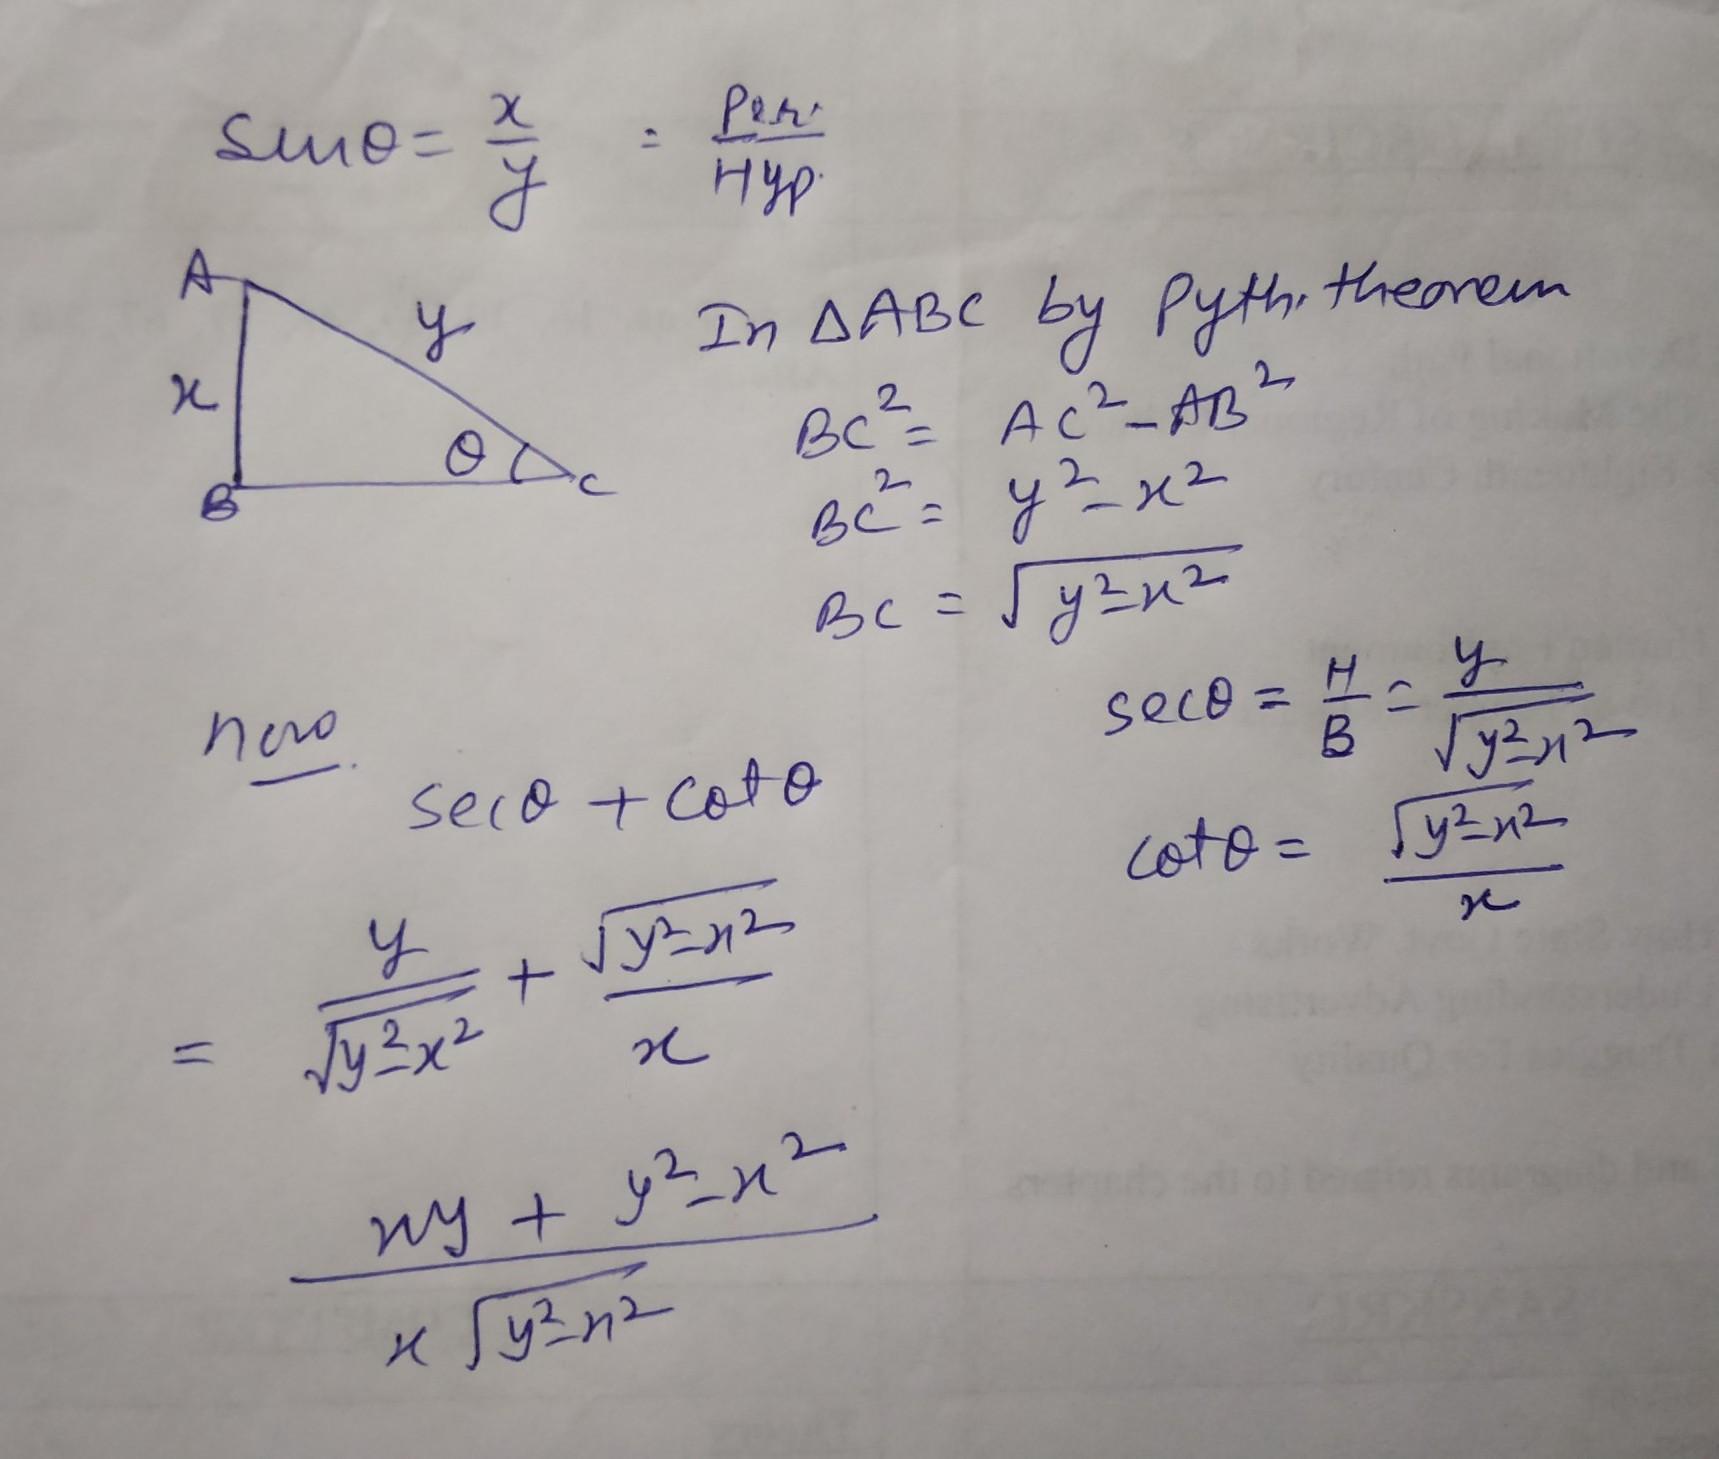 sinθ = x/y = Per./Hyp.
A
y
x
θ
B
C
In △ABC by Pyth. theorem
BC² = AC² - AB²
BC² = y² - x²
BC = √(y²-x²)
secθ = H/B = y/√(y²-x²)
cotθ = √(y²-x²)/x
now
secθ + cotθ
= y/√(y²-x²) + √(y²-x²)/x
(xy + y²-x²)/(x√(y²-x²))